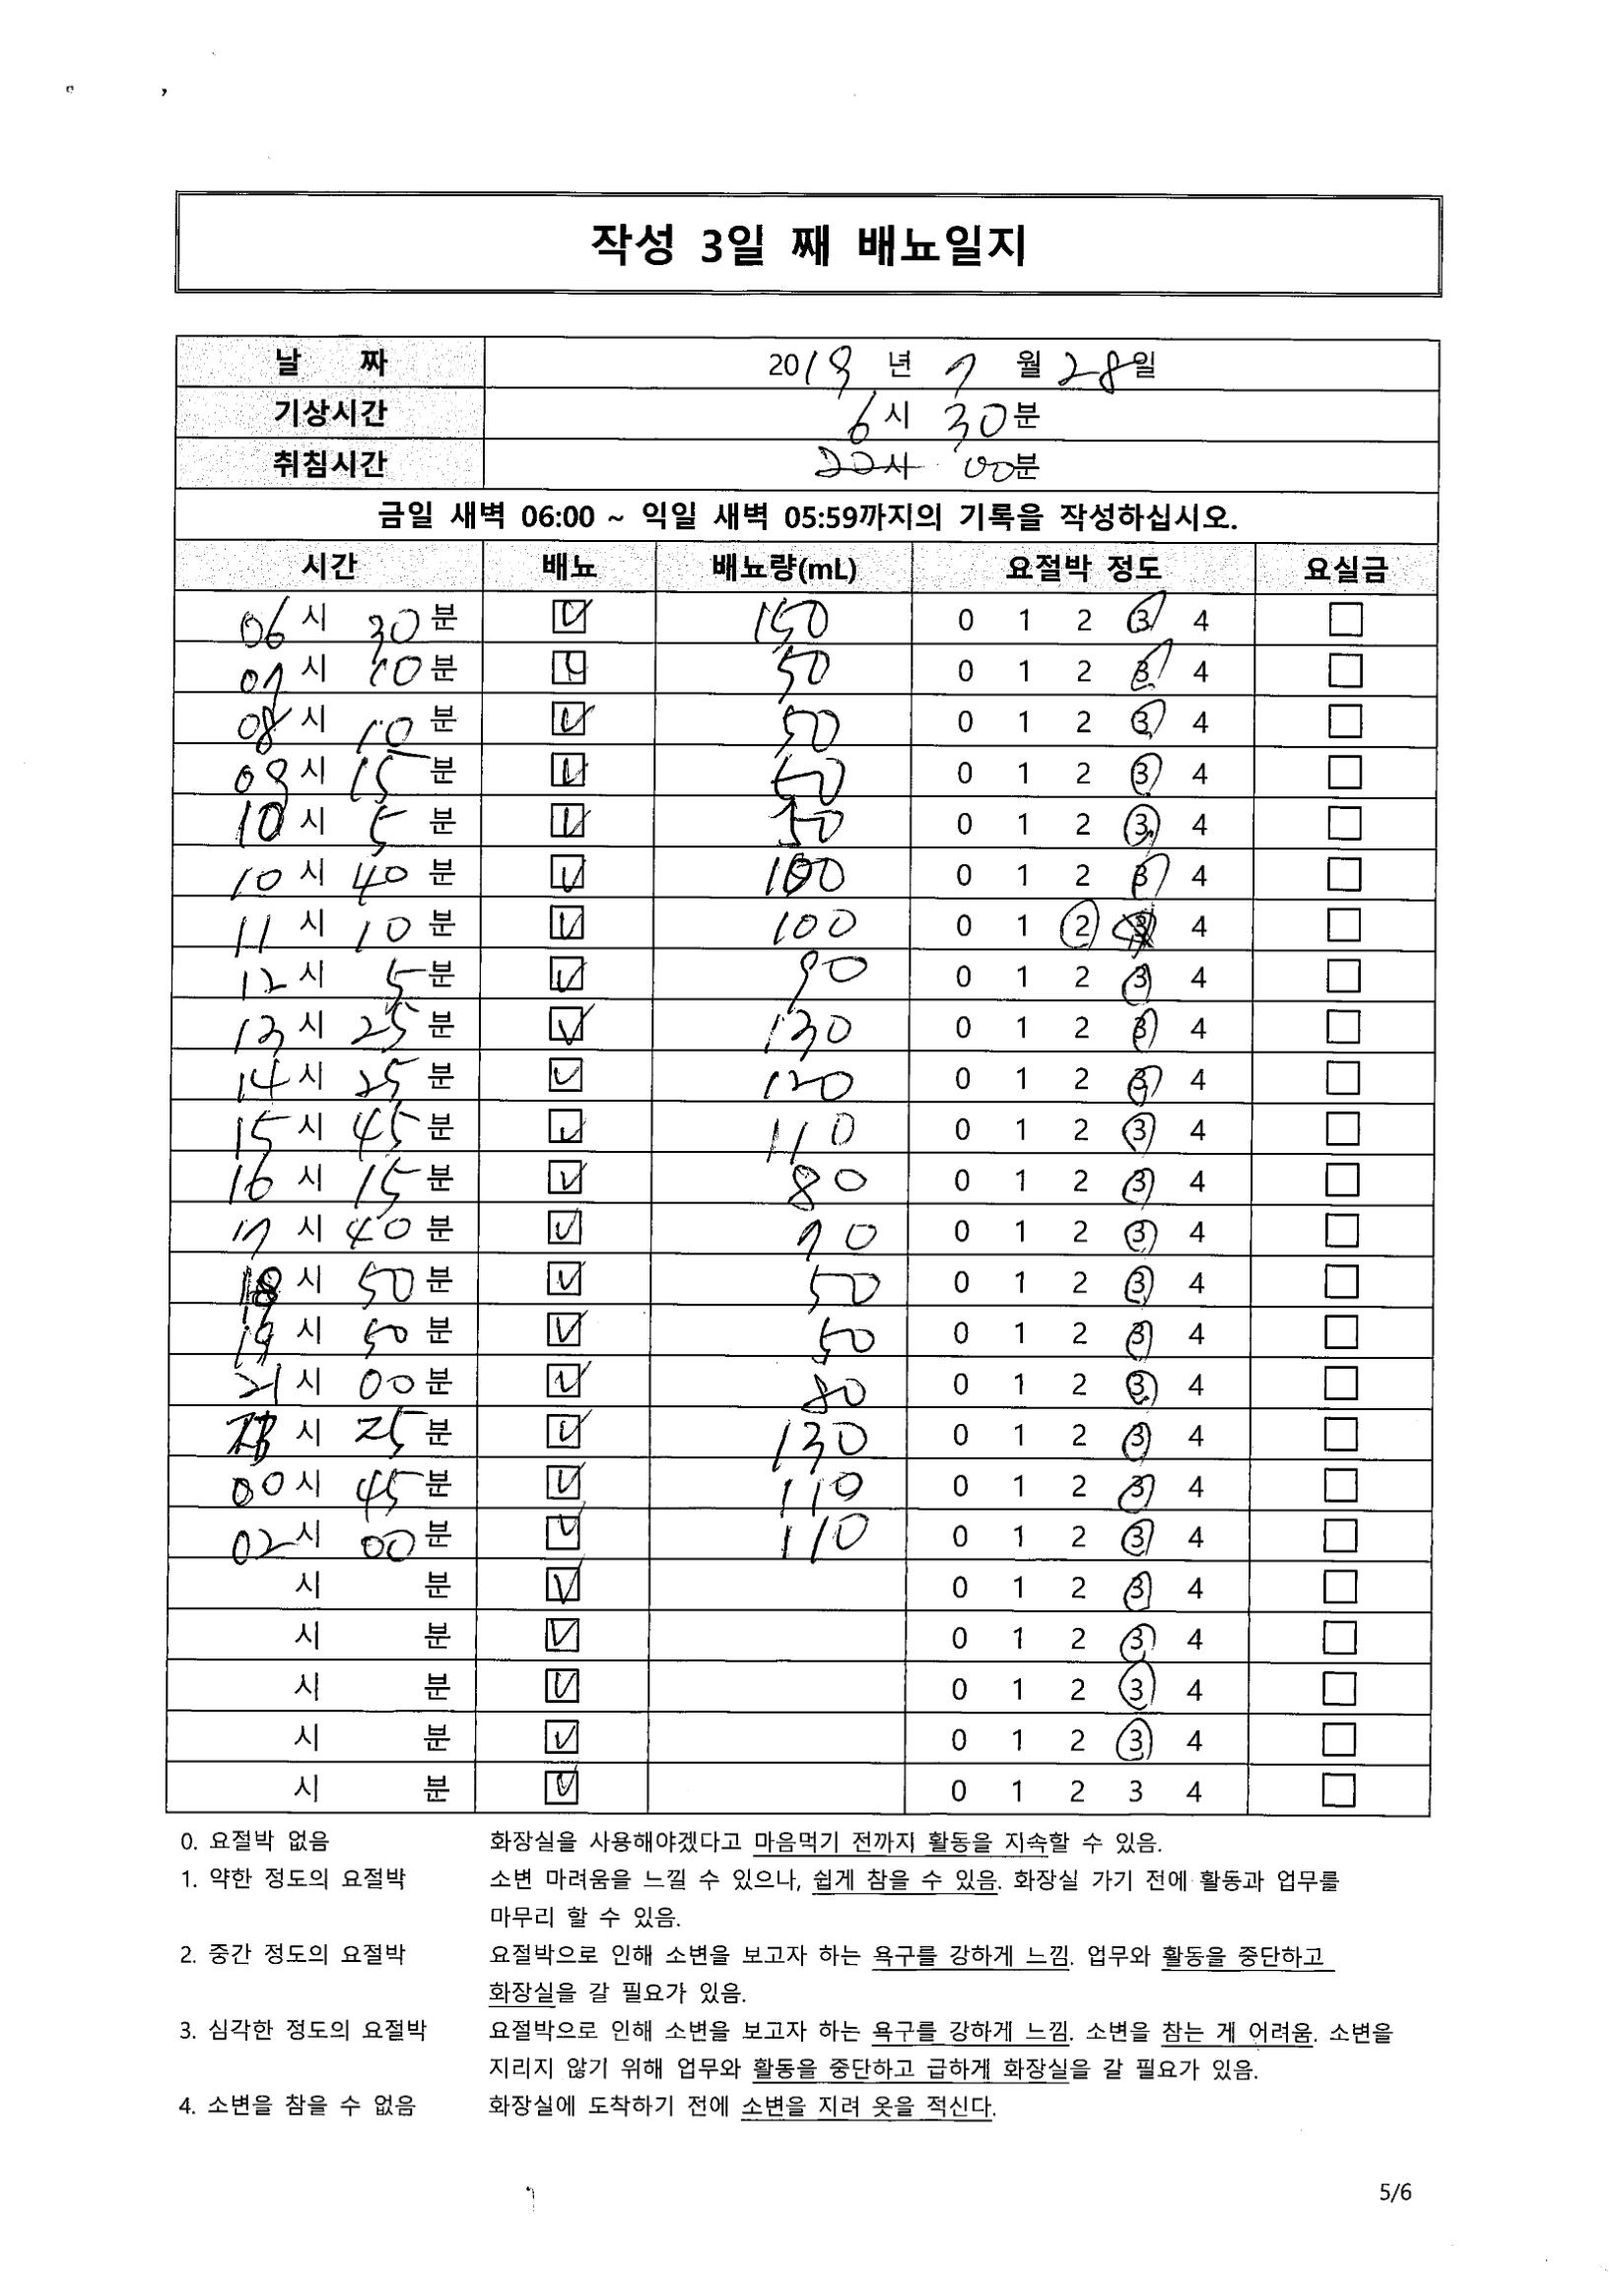 작성 3일 째 배뇨일지
날 짜 2019 년 7 월 28일
기상시간 6시 30분
취침시간 시 00분
금일 새벽 06:00 ~ 익일 새벽 05:59까지의 기록을 작성하십시오.
시간 배뇨 배뇨량(mL) 요절박 정도 요실금
06 시 30 분 150 0 1 2 3 4
07 시 10 분 50 0 1 2 3 4
08 시 10 분 50 0 1 2 3 4
09 시 15 분 50 0 1 2 3 4
10 시 5 분 50 0 1 2 3 4
10 시 40 분 100 0 1 2 3 4
11 시 10 분 100 0 1 2 3 4
12 시 5 분 90 0 1 2 3 4
13 시 25 분 130 0 1 2 3 4
14 시 25 분 120 0 1 2 3 4
15 시 45 분 110 0 1 2 3 4
16 시 15 분 80 0 1 2 3 4
17 시 40 분 70 0 1 2 3 4
18 시 50 분 50 0 1 2 3 4
19 시 50 분 50 0 1 2 3 4
21 시 00 분 80 0 1 2 3 4
시 25 분 130 0 1 2 3 4
00 시 45 분 110 0 1 2 3 4
02 시 00 분 110 0 1 2 3 4
시 분 0 1 2 3 4
시 분 0 1 2 3 4
시 분 0 1 2 3 4
시 분 0 1 2 3 4
시 분 0 1 2 3 4
0. 요절박 없음 화장실을 사용해야겠다고 마음먹기 전까지 활동을 지속할 수 있음.
1. 약한 정도의 요절박 소변 마려움을 느낄 수 있으나, 쉽게 참을 수 있음. 화장실 가기 전에 활동과 업무를
마무리 할 수 있음.
2. 중간 정도의 요절박 요절박으로 인해 소변을 보고자 하는 욕구를 강하게 느낌. 업무와 활동을 중단하고
화장실을 갈 필요가 있음.
3. 심각한 정도의 요절박 요절박으로 인해 소변을 보고자 하는 욕구를 강하게 느낌. 소변을 참는 게 어려움. 소변을
지리지 않기 위해 업무와 활동을 중단하고 급하게 화장실을 갈 필요가 있음.
4. 소변을 참을 수 없음 화장실에 도착하기 전에 소변을 지려 옷을 적신다.
5/6